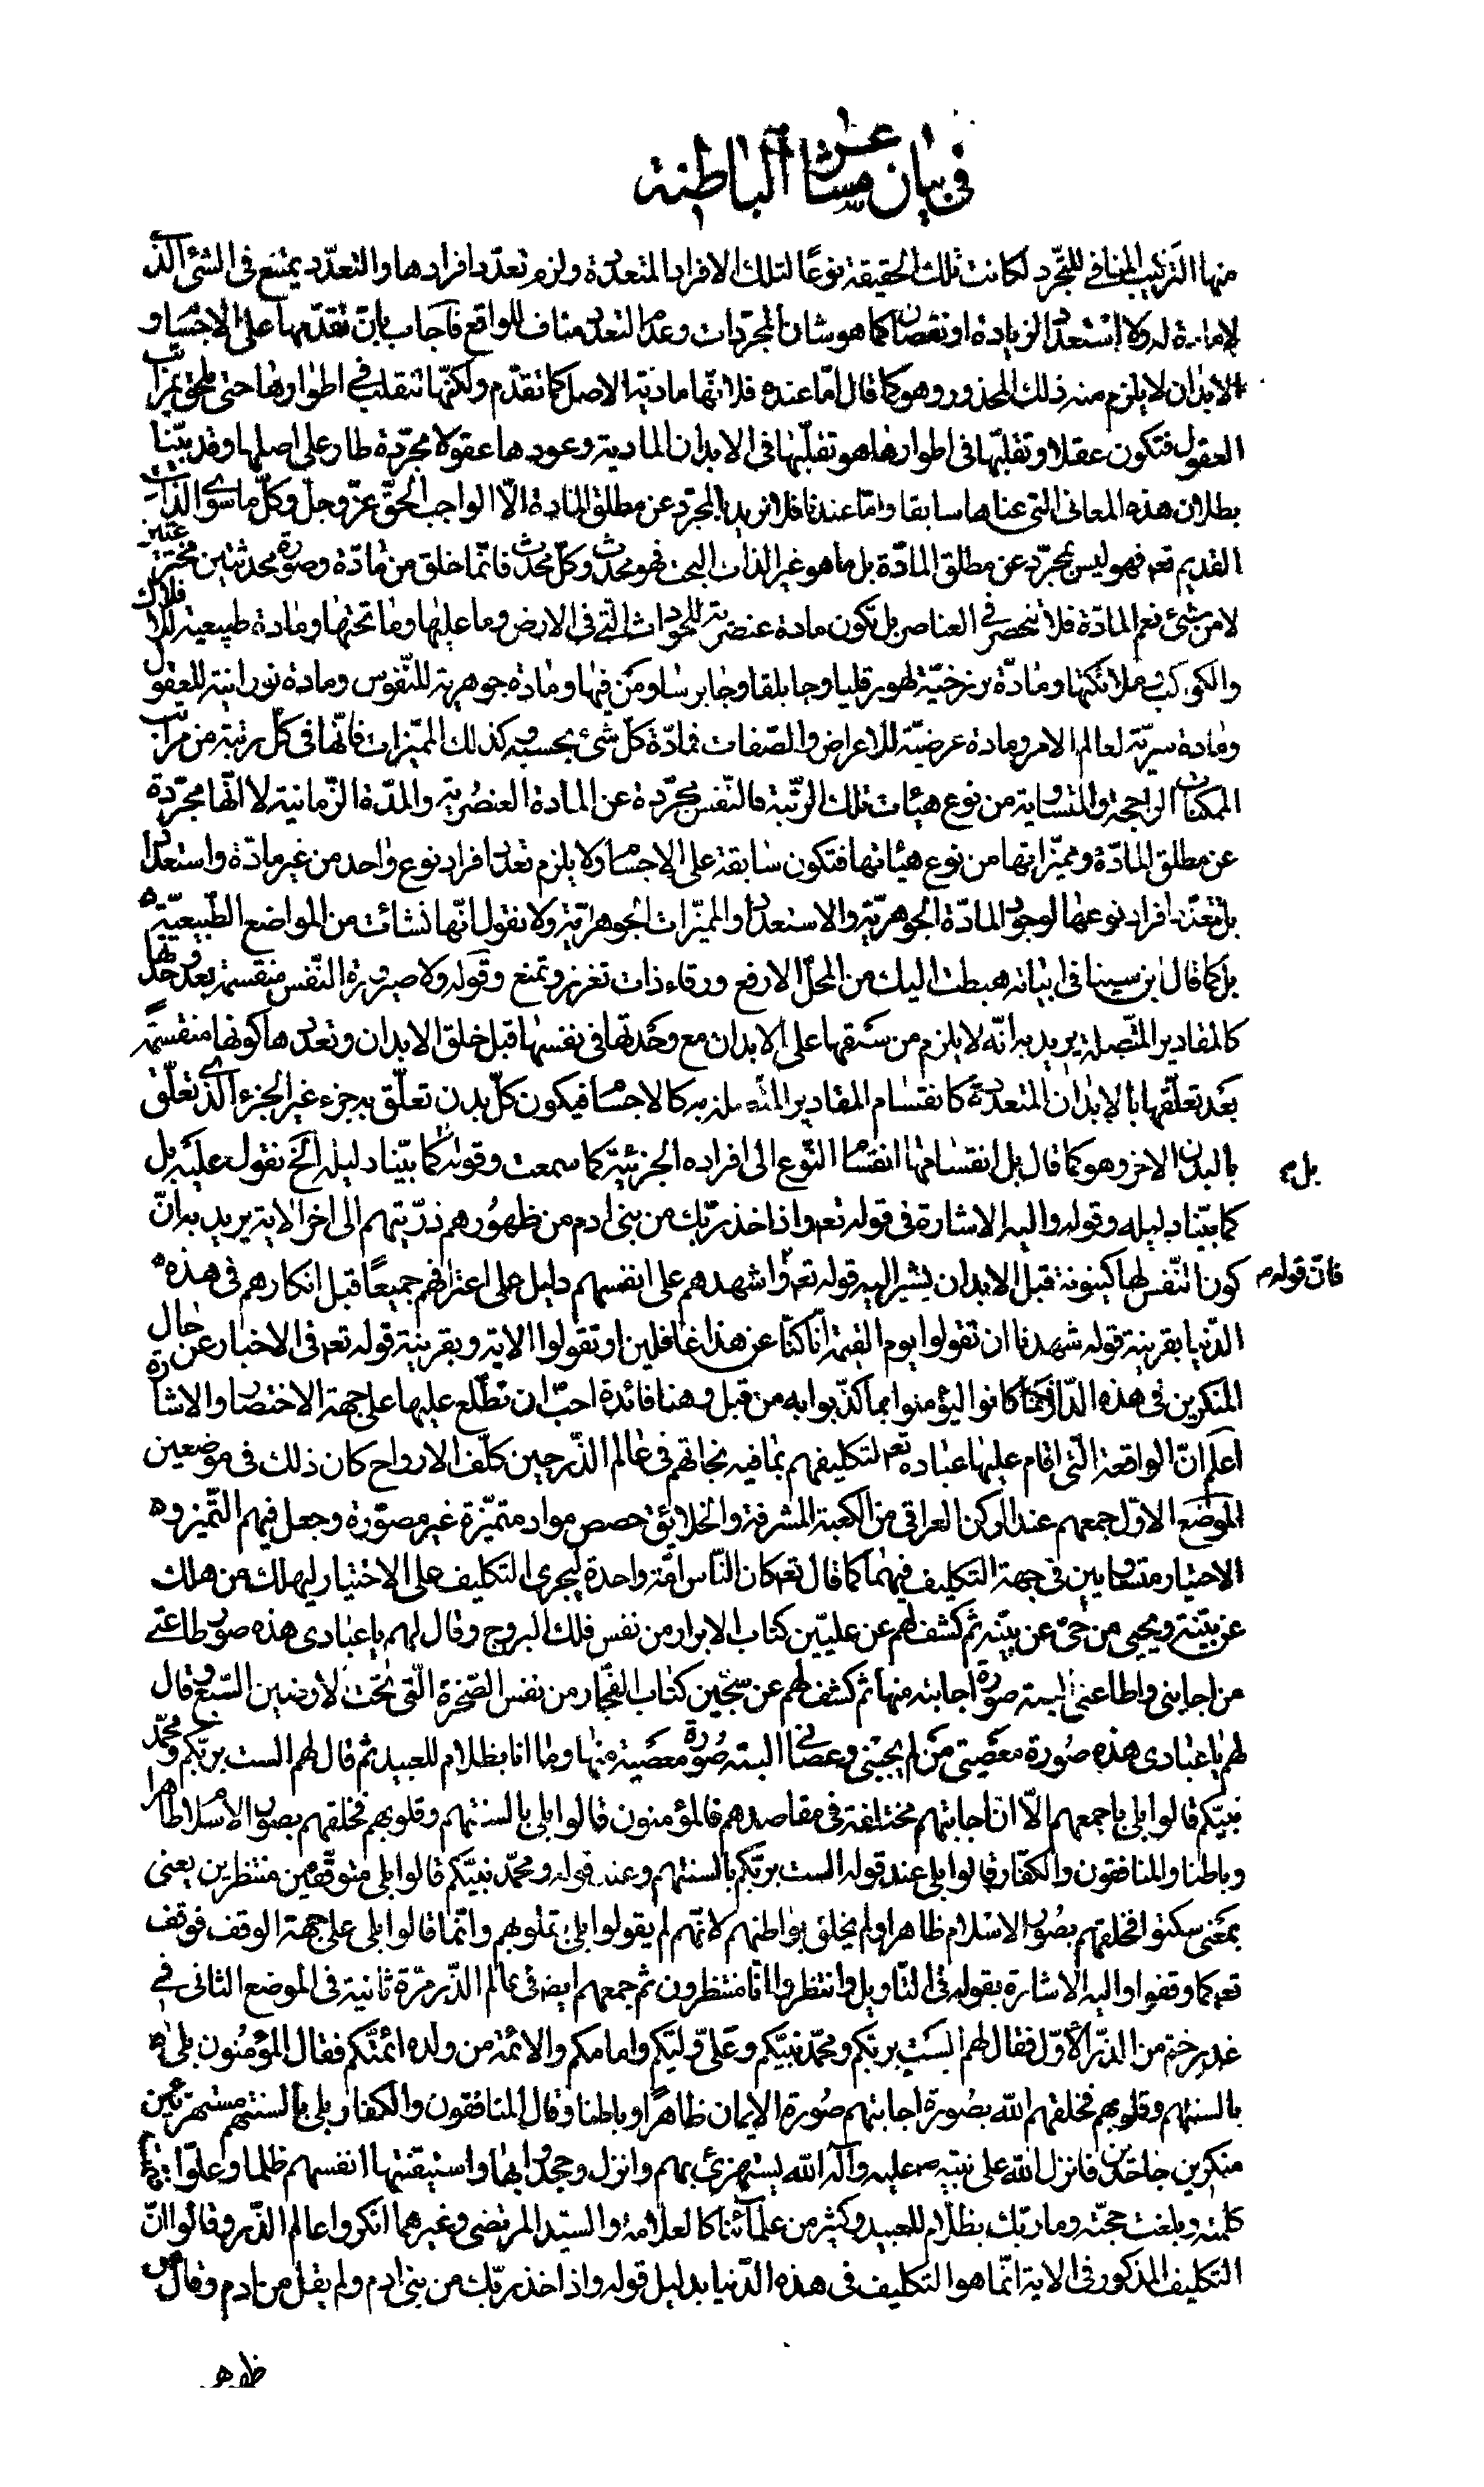 في بيان مشاعر الباطنة
منها الترتيب المنافي للتجرد لكانت تلك الحقيقة نوعًا لتلك الافراد المتعددة ولزم تعدّد افرادها والتعدّد يمتنع في الشئ الذ
لامادة له ولا استعداد لزيادة او نقصان كما هو شان المجرّدات وعدم التعدد مناف للواقع فاجاب بانّ تقدّمها على الاجسام و
الابدان لا يلزم منه ذلك المحذور وهو كما قال امّا عنده فلانّها مادية الاصل كما تقدّم ولكنّها تتقلب في اطوارها حتى تلحق بمراتب
العقول فتكون عقلا وتقلّبها في اطوارها هو تقلّبها في الابدان المادية وعودها عقولا مجرّدة طار على اصلها وقد بيّنا
بطلان هذه المعاني التي عناها سابقا وامّا عندنا فلا نريد بالمجرّد عن مطلق المادة الّا الواجب الحقّ عزّ وجل وكلّ ما سوى الذات
القديم تعم فهو ليس بمجرّد عن مطلق المادّة بل ما هو غير الذات البحت فهو محدث وكلّ محدث فانّما خلق من مادّة وصورة محدثتين مخترعتين
لا من شئ نعم المادّة فلا تنحصر في العناصر بل تكون مادة عنصرية للحوادث الّتي في الارض وما عليها وما تحتها ومادة طبيعية للافلاك
والكواكب وملائكتها ومادّة برزخيّة لهورقليا وجابلقا وجابرسا ومن فيها ومادة جوهرية للنّفوس ومادة نورانية للعقول
ومادة سريّة لعالم الامر ومادة عرضيّة للاعراض والصّفات فمادّة كلّ شئ بحسبه وكذلك المميّزات فانّها في كلّ رتبة من مراتب
الممكنات الراجحة والمتساوية من نوع هيئات تلك الرتبة فالنّفس مجرّدة عن المادة العنصرية والمدّة الزّمانية لا انّها مجرّدة
عن مطلق المادّة ومميّزاتها من نوع هيئاتها فتكون سابقة على الاجسام ولا يلزم تعدّد افراد نوع واحد من غير مادّة واستعداد
بل تتعدّد افراد نوعها لوجود المادّة الجوهريّة والاستعداد والمميّزات الجوهريّة ولا نقول انّها نشأت من المواضع الطّبيعيّة
بل كما قال بن سينا في ابياته هبطت اليك من المحلّ الارفع ورقاء ذات تعزز وتمنع وقوله ولا صيرورة النّفس منقسمة بعد وحدتها
كالمقادير المتّصلة يريد به انّه لا يلزم من سبقها على الابدان مع وحدتها في نفسها قبل خلق الابدان وتعددها كونها منقسمة
بعد تعلّقها بالابدان المتعدّدة كانقسام المقادير المتّصلة به كالاجسام فيكون كلّ بدن تعلّق به جزء غير الجزء الّذي تعلّق
بالبدن الاخر وهو كما قال بل انقسامها انقسام النّوع الى افراده الجزئيّة كما سمعت وقوله كما بيّنا دليله الخ نقول عليه بل
بل م
كما بيّنا دليله وقوله واليه الاشارة في قوله تعم واذ اخذ ربّك من بني ادم من ظهورهم ذرّيتهم الى اخر الاية يريد به انّ
كون النّفس لها كينونة قبل الابدان يشير اليه قوله تعم واشهدهم على انفسهم دليل على اعترافهم جميعًا قبل انكارهم في هذه
فان قوله م
الدّنيا بقرينة قوله شهدنا ان تقولوا يوم القيمة انّا كنّا عن هذا غافلين او تقولوا الاية وبقرينة قوله تعم في الاخبار عن حال
المنكرين في هذه الدّار فما كانوا ليؤمنوا بما كذّبوا به من قبل وهنا فائدة احبّ ان تطّلع عليها على جهة الاختصار والاشارة
اعلم انّ الواقعة الّتي اقام عليها عباده تعم لتكليفهم بما فيه نجاتهم في عالم الذّر حين كلّف الارواح كان ذلك في موضعين
الموضع الاوّل جمعهم عند الركن العراقي من الكعبة المشرفة والخلائق حصص مواد متميّزة غير مصوّرة وجعل فيهم التّميز و
الاختيار متساويين في جهة التكليف فيهما كما قال تعم كان النّاس امّة واحدة ليجرى التكليف على الاختيار ليهلك من هلك
عن بيّنة ويحيى من حىّ عن بيّنة ثم كشف لهم عن علييّن كتاب الابرار من نفس فلك البروج وقال لهم يا عبادى هذه صور طاعتي
من اجابني واطاعني البسته صورة اجابته منها ثم كشف لهم عن سجّين كتاب الفجّار من نفس الصّخرة الّتي تحت الارضين السّبع وقال
لهم يا عبادى هذه صورة معصيتي من لم يجبني وعصاني البسته صورة معصية منها وما انا بظلام للعبيد ثم قال لهم الست بربّكم ومحمّد
نبيّكم قالوا بلى باجمعهم الّا انّ اجابتهم مختلفة في مقاصدهم فالمؤمنون قالوا بلى بالسنتهم وقلوبهم فخلقهم بصور الاسلام ظاهرا
وباطنا والمنافقون والكفّار قالوا بلى عند قوله الست بربّكم بالسنتهم وعند قوله ومحمّد نبيّكم قالوا بلى متوقّفين منتظرين يعني
بمعنى سكتوا فخلقهم بصور الاسلام ظاهرا ولم يخلق بواطنهم لانّهم لم يقولوا بلى بقلوبهم وانّما قالوا بلى على جهة الوقف فوقف
تعم كما وقفوا واليه الاشارة بقوله في التّاويل وانتظروا انّا منتظرون ثم جمعهم ايضا في عالم الذّر مرّة ثانية في الموضع الثاني في
غدير خم من الذّر الاوّل فقال لهم الست بربّكم ومحمّد نبيّكم وعلىّ وليّكم وامامكم والائمة من ولده ائمّتكم فقال المؤمنون بلى
بالسنتهم وقلوبهم فخلقهم الله بصورة اجابتهم صورة الايمان ظاهرًا وباطنا وقال المنافقون والكفار بلى بالسنتهم مستهزئين
منكرين جاحدين فانزل الله على نبيّه ص عليه وآله الله يستهزئ بهم وانزل وجحدوا بها واستيقنتها انفسهم ظلما وعلوّا
كلمته وبلغت حجّته وما ربّك بظلّام للعبيد وكثير من علمآئنا كالعلّامة والسيّد المرتضى وغيرهما انكروا عالم الذّر وقالوا انّ
التكليف المذكور في الاية انّما هو التكليف في هذه الدّنيا بدليل قوله واذ اخذ ربّك من بني ادم ولم يقل من ادم وقال من
ظهورهم